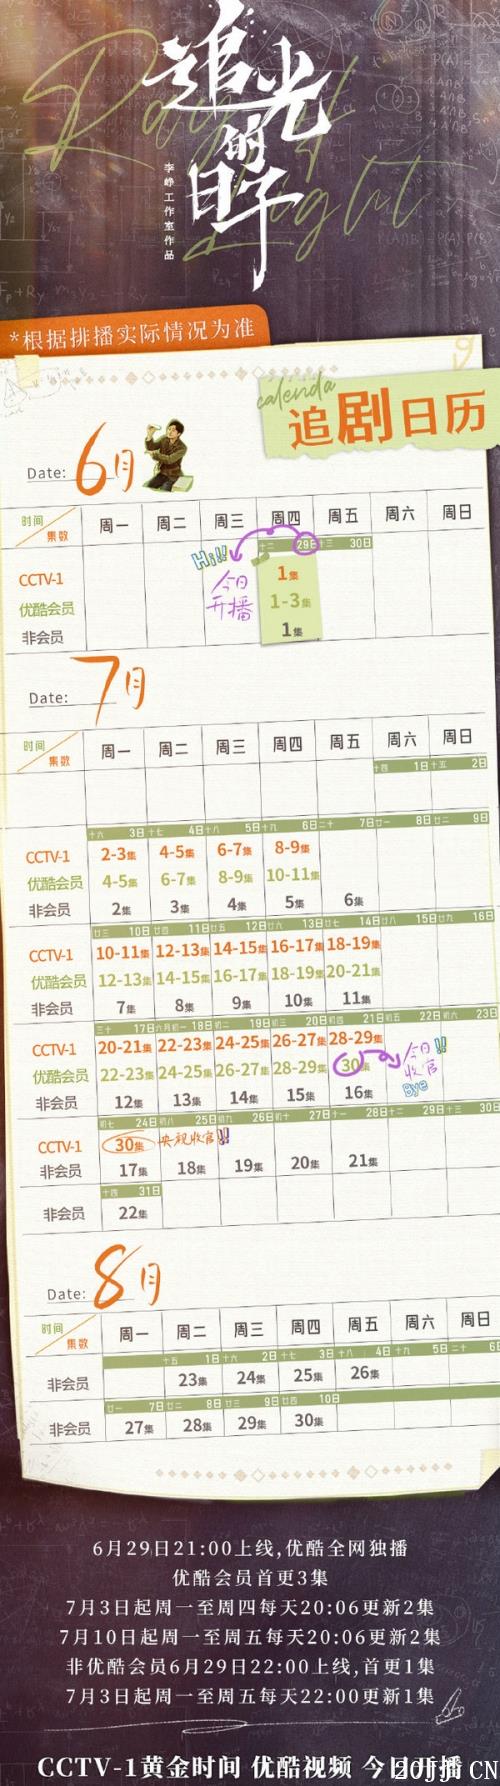 追光的日子
Ray of Light
李峥工作室作品
*根据排播实际情况为准
calenda
追剧日历
Date: 6月
时间 集数 周一 周二 周三 周四 周五 周六 周日
十二 29日 十三 30日
Hi!!
今日开播
CCTV-1 1集
优酷会员 1-3集
非会员 1集
Date: 7月
时间 集数 周一 周二 周三 周四 周五 周六 周日
十四 1日 十五 2日
十六 3日 十七 4日 十八 5日 十九 6日 二十 7日 廿一 8日 廿二 9日
CCTV-1 2-3集 4-5集 6-7集 8-9集
优酷会员 4-5集 6-7集 8-9集 10-11集
非会员 2集 3集 4集 5集 6集
廿三 10日 廿四 11日 廿五 12日 廿六 13日 廿七 14日 廿八 15日 廿九 16日
CCTV-1 10-11集 12-13集 14-15集 16-17集 18-19集
优酷会员 12-13集 14-15集 16-17集 18-19集 20-21集
非会员 7集 8集 9集 10集 11集
三十 17日 六月初一 18日 初二 19日 初三 20日 初四 21日 初五 22日 初六 23日
CCTV-1 20-21集 22-23集 24-25集 26-27集 28-29集
优酷会员 22-23集 24-25集 26-27集 28-29集 30集
今日收官!!
Bye
非会员 12集 13集 14集 15集 16集
初七 24日 初八 25日 初九 26日 初十 27日 十一 28日 十二 29日 十三 30日
CCTV-1 30集 央视收官!!
非会员 17集 18集 19集 20集 21集
十四 31日
非会员 22集
Date: 8月
时间 集数 周一 周二 周三 周四 周五 周六 周日
十五 1日 十六 2日 十七 3日 十八 4日 十九 5日 二十 6日
非会员 23集 24集 25集 26集
廿一 7日 廿二 8日 廿三 9日 廿四 10日
非会员 27集 28集 29集 30集
6月29日21:00上线,优酷全网独播
优酷会员首更3集
7月3日起周一至周四每天20:06更新2集
7月10日起周一至周五每天20:06更新2集
非优酷会员6月29日22:00上线,首更1集
7月3日起周一至周五每天22:00更新1集
CCTV-1黄金时间 优酷视频 今日开播
20JJJ CN